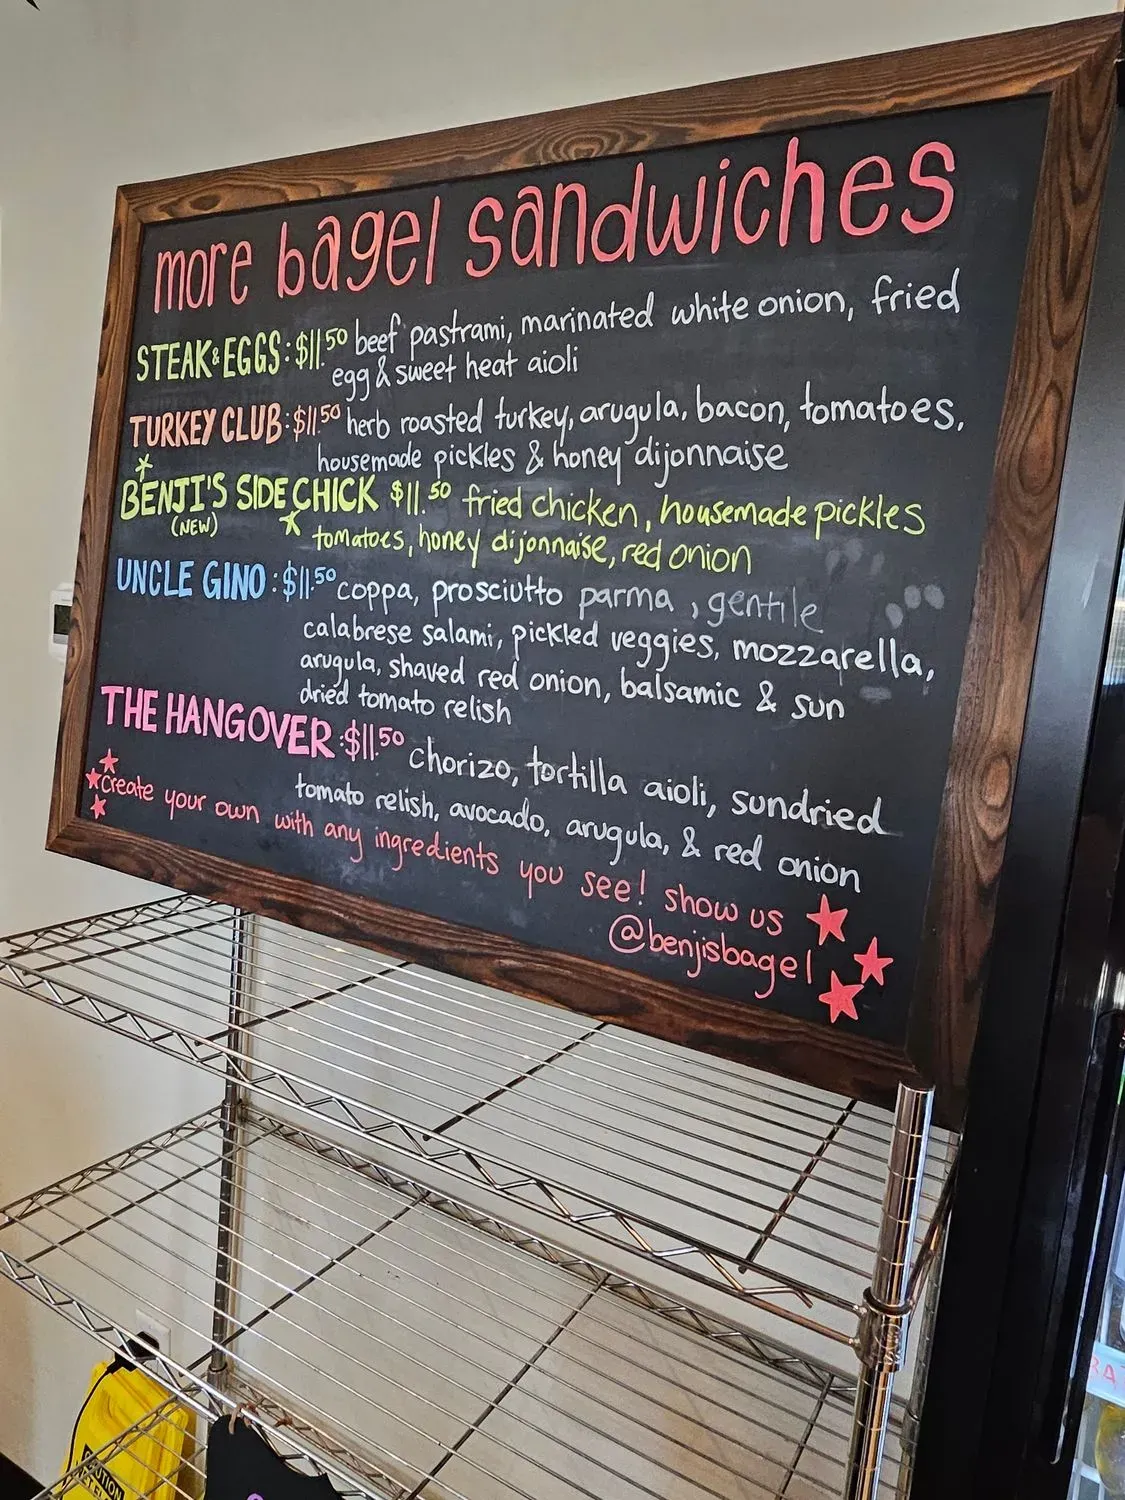 more bagel sandwiches
STEAK & EGGS: $11.50 beef pastrami, marinated white onion, fried
egg & sweet heat aioli
TURKEY CLUB: $11.50 herb roasted turkey, arugula, bacon, tomatoes,
housemade pickles & honey dijonnaise
BENJI'S SIDE CHICK $11.50 fried chicken, housemade pickles
(NEW) tomatoes, honey dijonnaise, red onion
UNCLE GINO: $11.50 coppa, prosciutto parma, gentile
calabrese salami, pickled veggies, mozzarella,
arugula, shaved red onion, balsamic & sun
dried tomato relish
THE HANGOVER: $11.50 chorizo, tortilla aioli, sundried
tomato relish, avocado, arugula, & red onion
create your own with any ingredients you see! show us
@benjisbagel
CAUTION